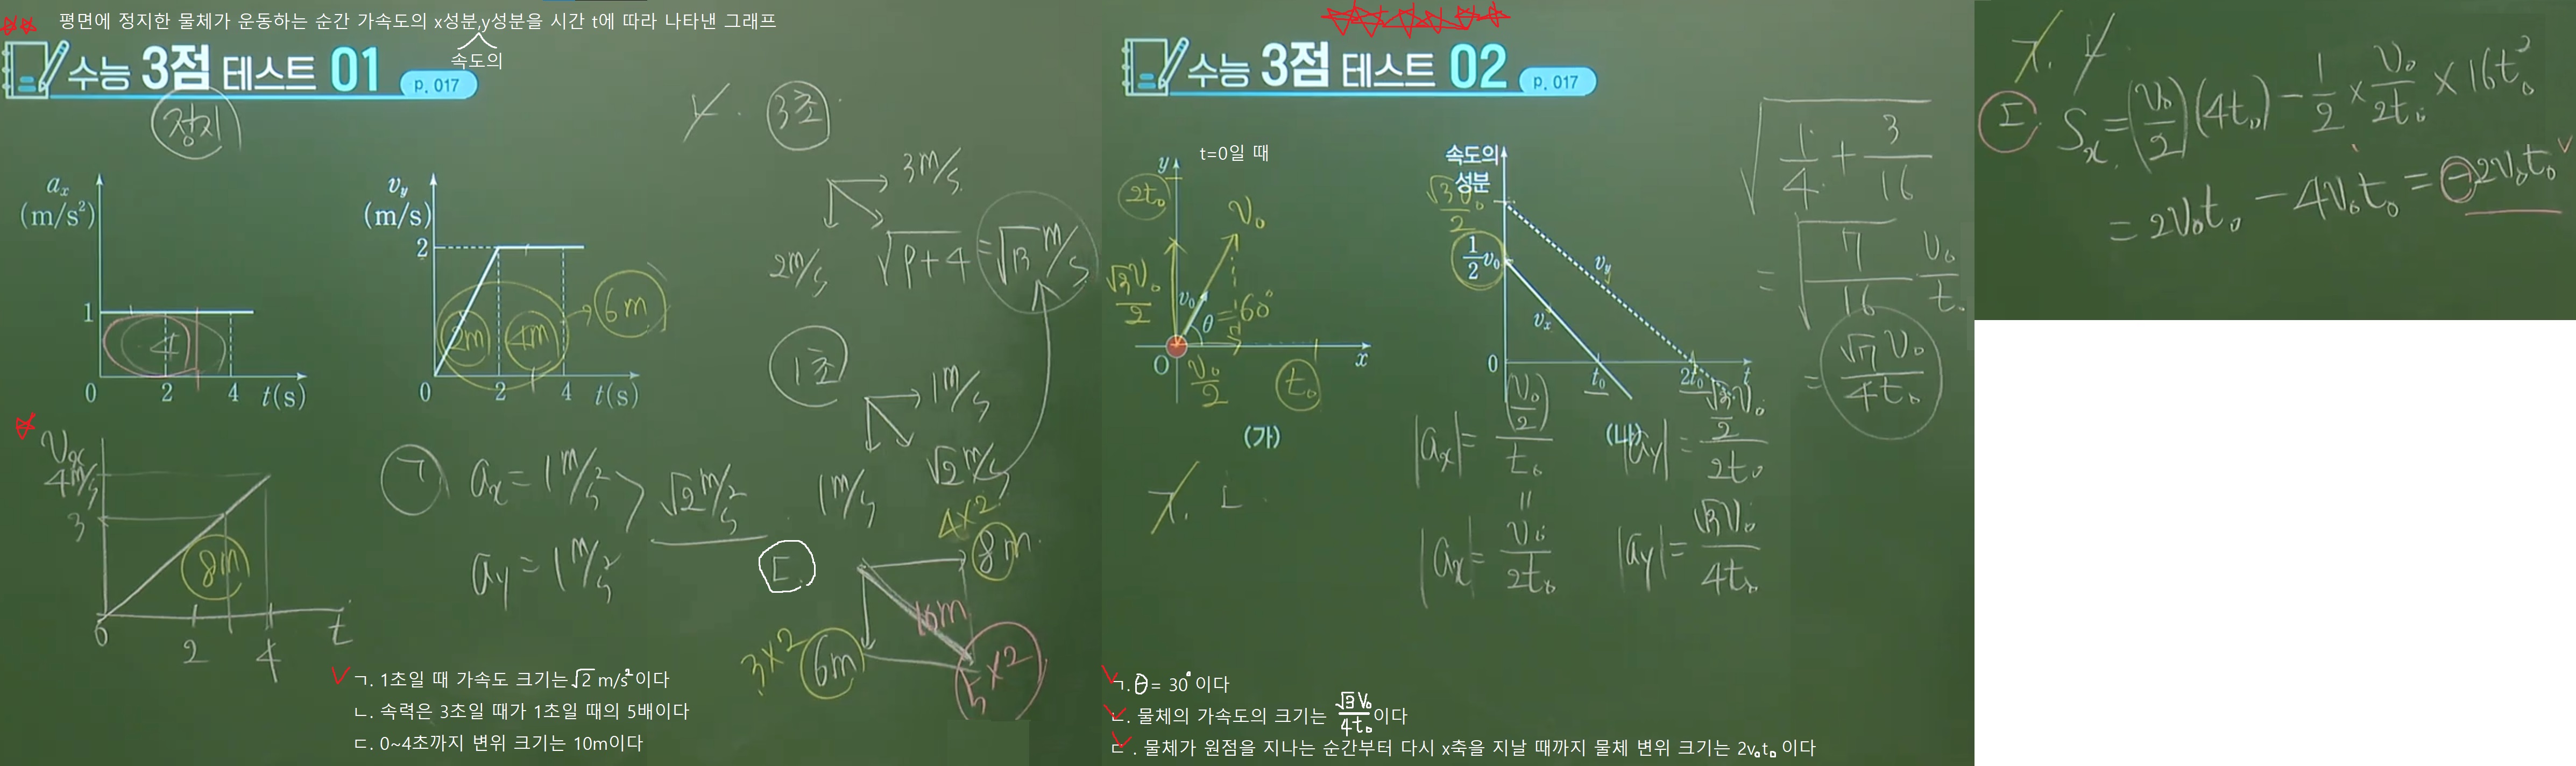 평면에 정지한 물체가 운동하는 순간 가속도의 x성분,y성분을 시간 t에 따라 나타낸 그래프
속도의
수능 3점 테스트 01 p. 017
정지
aₓ
(m/s²)
1
4
0 2 4 t(s)
v_y
(m/s)
2
2m 4m 6m
0 2 4 t(s)
ㄴ. 3초
3m/s
2m/s √9+4 = √13 m/s
1초
1m/s
1m/s √2 m/s
Vx
4m/s
3
8m
0 2 4 t
ㄱ aₓ = 1m/s²
a_y = 1m/s²
√2 m/s²
ㄷ.
4×2 8m
3×2 6m
10m
5×2
ㄱ. 1초일 때 가속도 크기는 √2 m/s²이다
ㄴ. 속력은 3초일 때가 1초일 때의 5배이다
ㄷ. 0~4초까지 변위 크기는 10m이다
수능 3점 테스트 02 p. 017
t=0일 때
y
2t₀
V₀
√3V₀/2
v₀
θ = 60°
O V₀/2 t₀ x
(가)
속도의 성분
√3V₀/2
1/2 v₀
v_y
vₓ
0 t₀ 2t₀ t
(나)
|aₓ| = (V₀/2)/t₀ |a_y| = (√3V₀/2)/2t₀
|aₓ| = V₀/2t₀ |a_y| = √3V₀/4t₀
√(1/4 + 3/16)
= √(7/16) V₀/t₀
= √7V₀/4t₀
ㄱ. ㄴ.
ㄱ. θ = 30°이다
ㄴ. 물체의 가속도의 크기는 √3V₀/4t₀이다
ㄷ. 물체가 원점을 지나는 순간부터 다시 x축을 지날 때까지 물체 변위 크기는 2v₀t₀ 이다
ㄱ. ㄴ.
ㄷ. Sₓ = (V₀/2)(4t₀) - 1/2 × V₀/2t₀ × 16t₀²
= 2V₀t₀ - 4V₀t₀ = -2V₀t₀